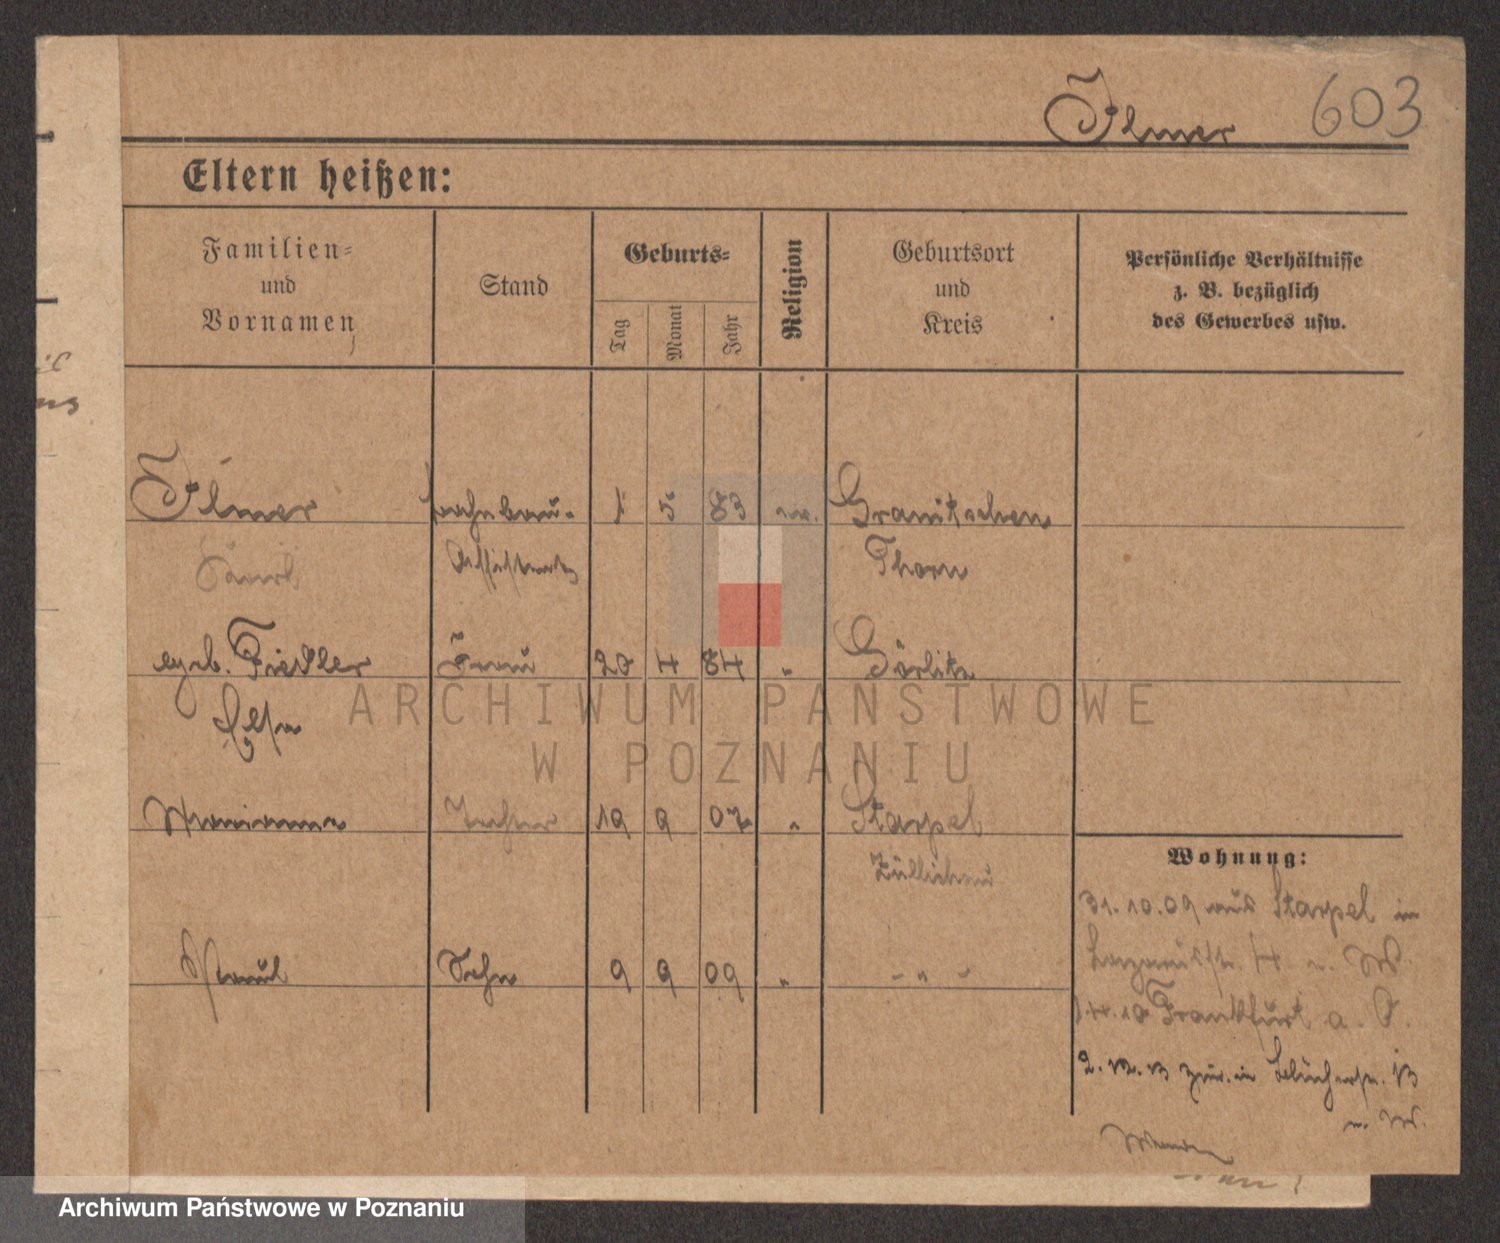 Ilmer 603
Eltern heißen:
Familien-
und
Vornamen
Stand
Geburts-
Tag
Monat
Jahr
Religion
Geburtsort
und
Kreis
Persönliche Verhältnisse
z. B. bezüglich
des Gewerbes usw.
Ilmer 1 5 83 ev. Gramtschen
Assistent Thorn
geb. Fiedler Frau 20 4 84 " Görlitz
Else
Marianne Tochter 19 9 07 " Starpel
Züllichau
Paul Sohn 9 9 09 " - " -
Wohnung:
31.10.09 aus Starpel in
4 n. W.
14.10 Frankfurt a. O.
2.12.13 zur. in Blücherstr. 13
n. W.
ARCHIWUM PAŃSTWOWE
W POZNANIU
Archiwum Państwowe w Poznaniu